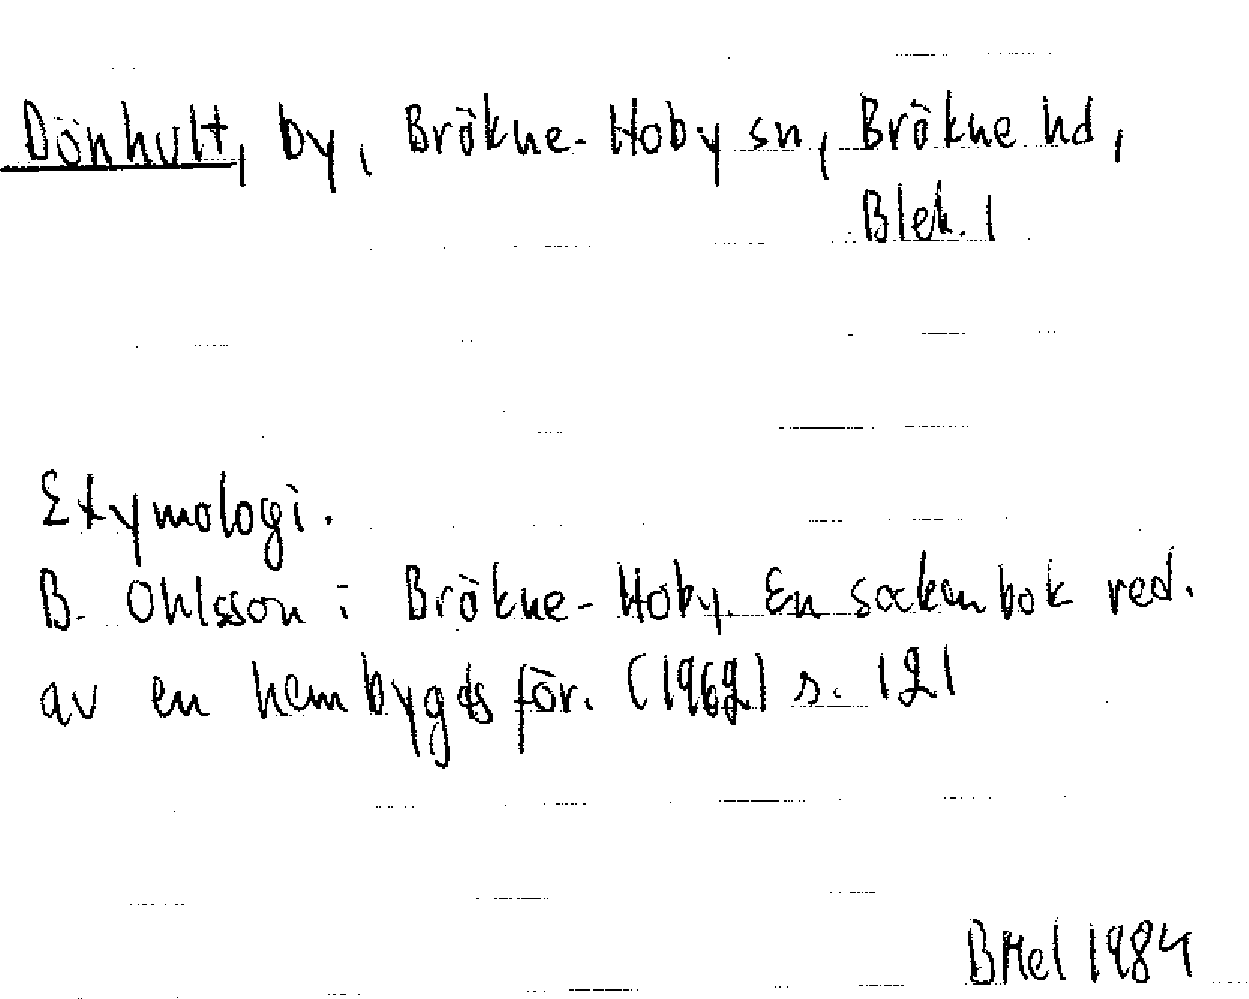 Dönhult, by, Bräkne-Hoby sn, Bräkne hd,
Blek. l
Etymologi.
B. Ohlsson i Bräkne-Hoby. En sockenbok red.
av en hembygdsför. (1962) s. 121
BHel 1984